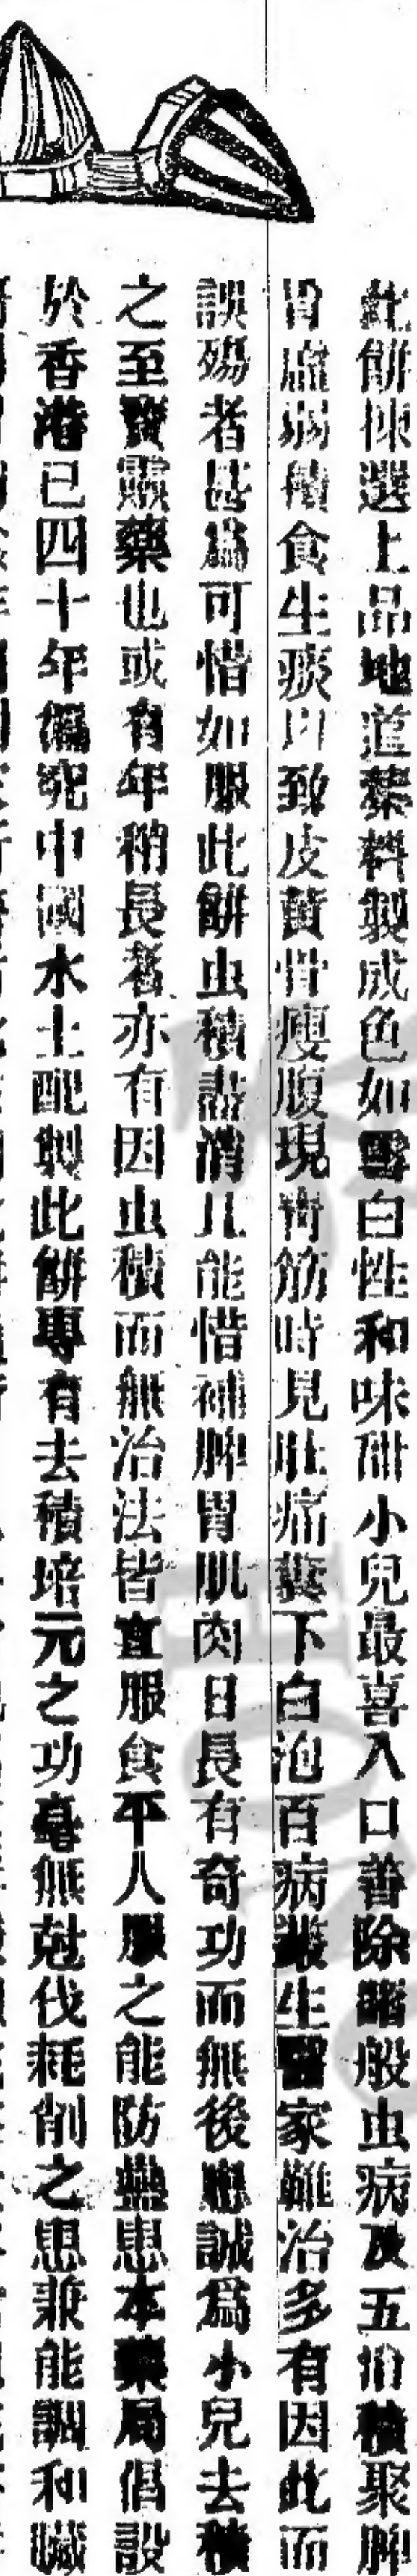 此餅揀選上品地道藥料製成色如雪白性和味甜小兒最喜入口善除諸般虫病及五疳積聚脾
胃虛弱積食生痰以致皮黃骨瘦腹現青筋時見肚痛糞下白泡百病叢生醫家難治多有因此而
誤殤者甚爲可惜如服此餅虫積盡消且能惜補脾胃肌肉日長有奇功而無後患誠爲小兒去積
之至寶靈藥也或有年稍長者亦有因虫積而無治法皆宜服食平人服之能防蟲患本藥局倡設
於香港已四十年徧究中國水土配製此餅專有去積培元之功毫無尅伐耗削之患兼能調和臟